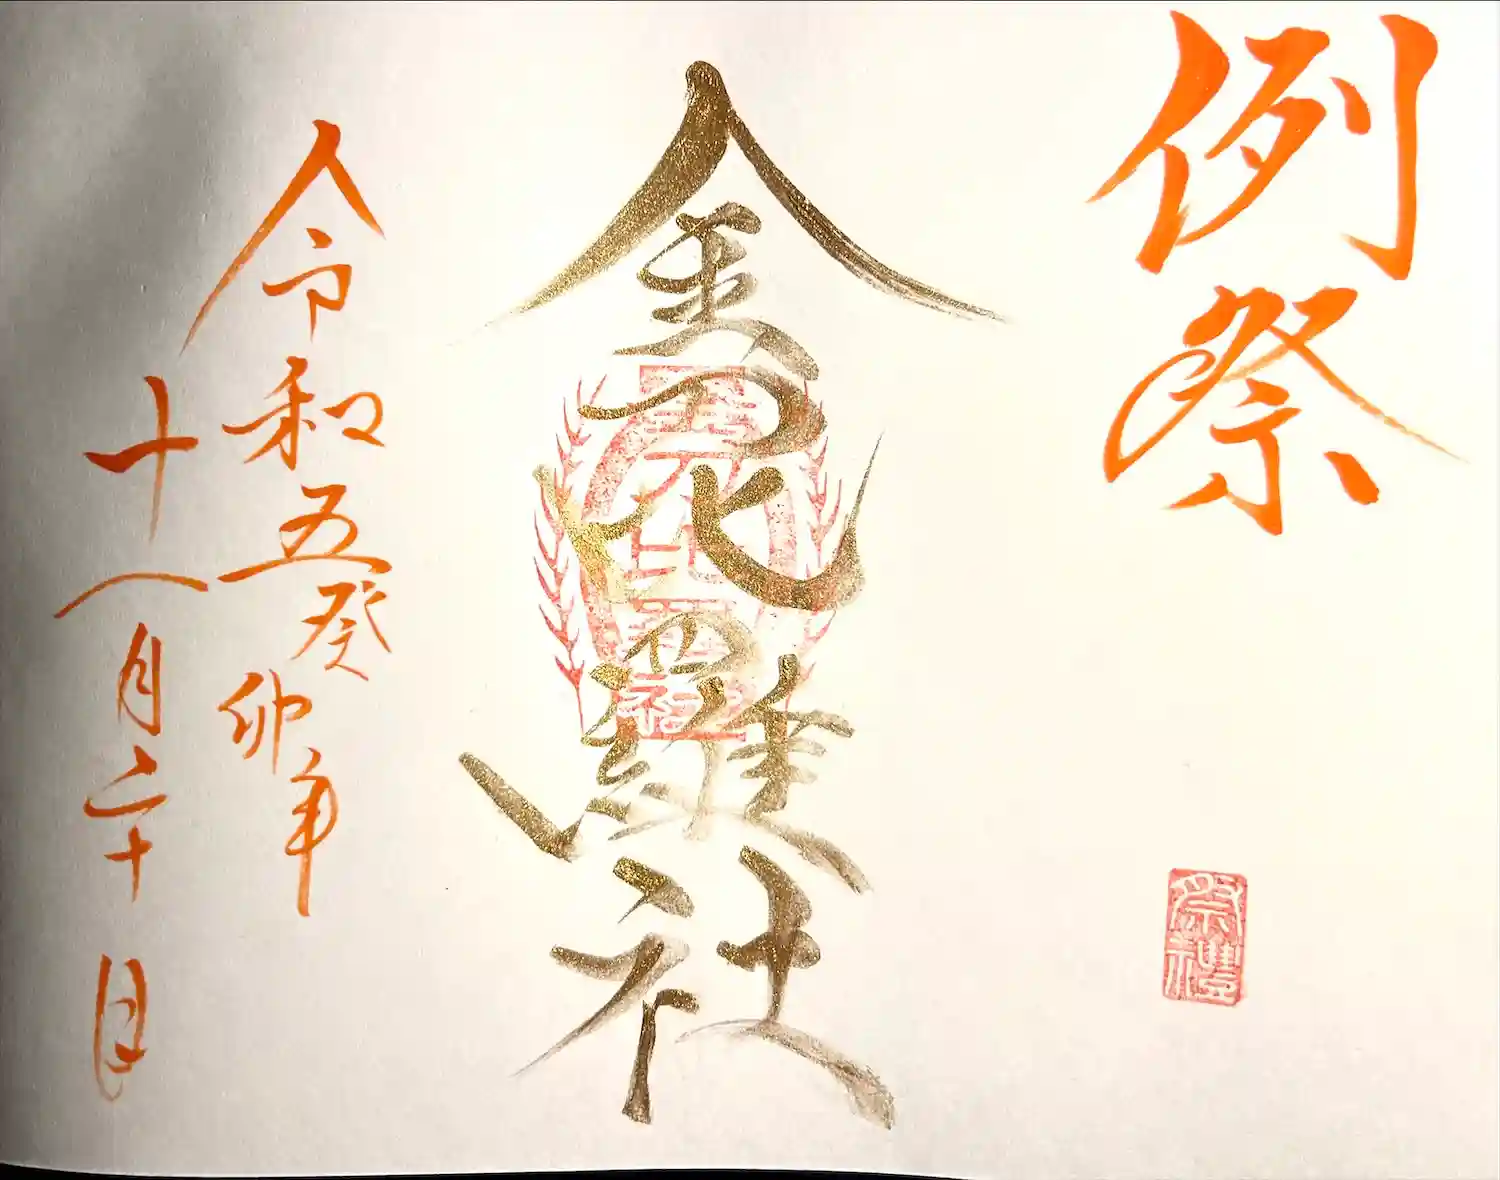 例祭
祭禮
金刀比羅社
令和五癸卯年
十一月二十日